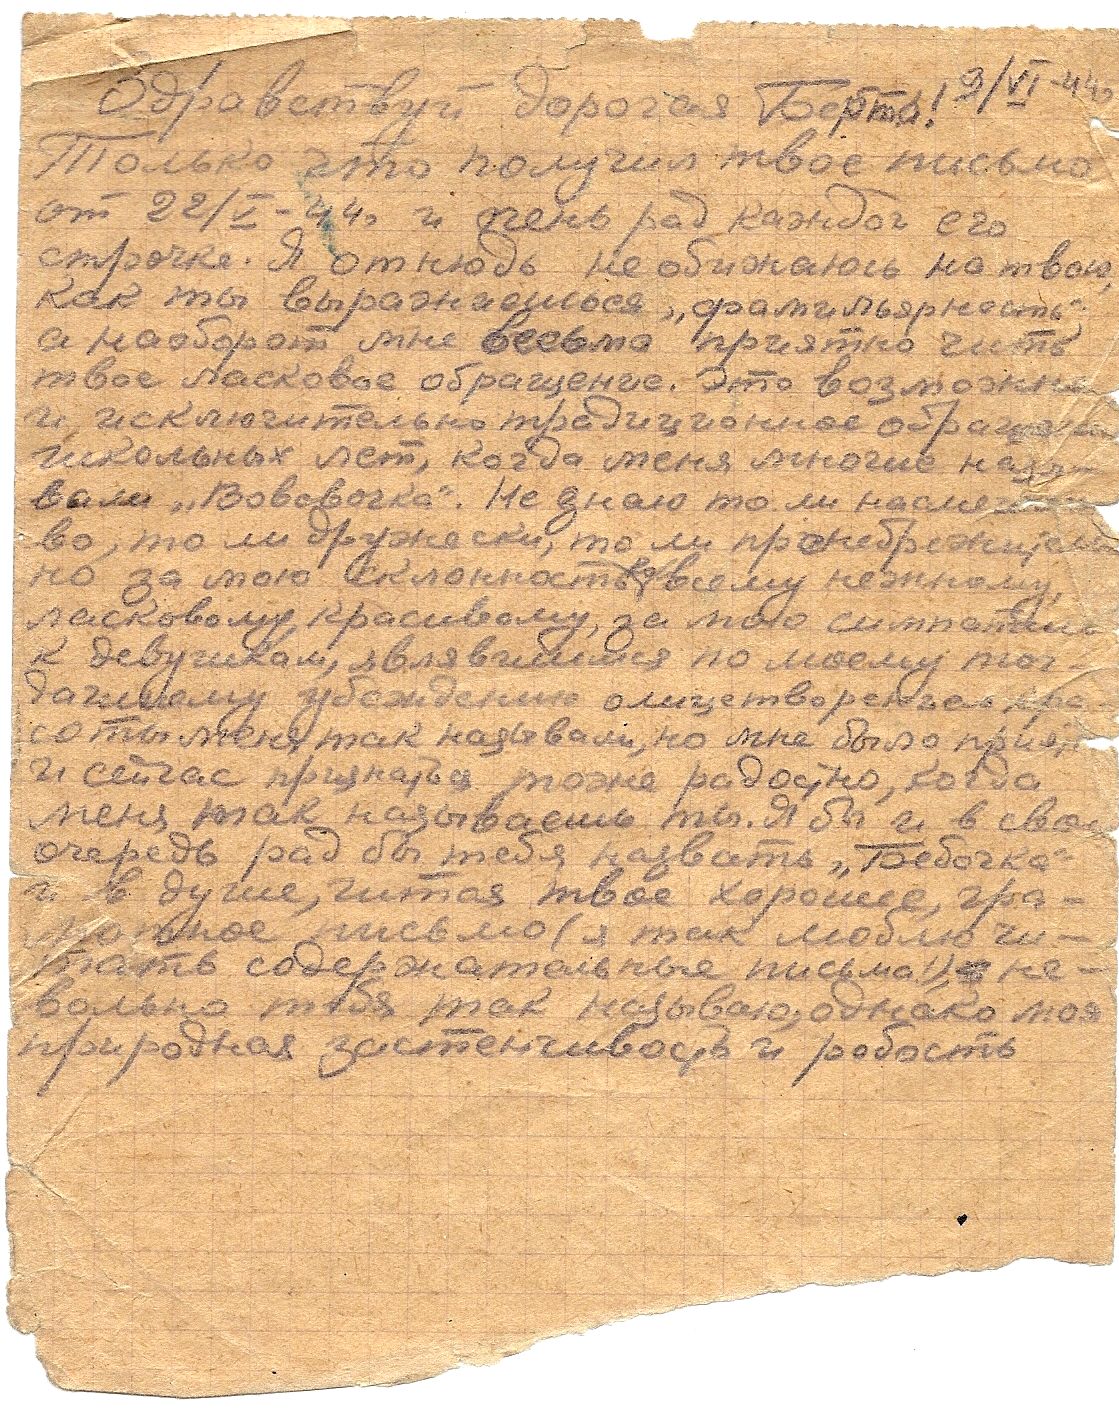 Здравствуй дорогая Берта! 9/VI-44г
Только что получил твое письмо
от 22/V-44г и очень рад каждой его
строчке. Я отнюдь не обижаюсь на твою,
как ты выражаешься, „фамильярность",
а наоборот мне весьма приятно чить
твое ласковое обращение. Это возможно
и исключительно традиционное обращение
школьных лет, когда меня многие назы-
вали „Вововочка". Не знаю то ли насмешли
во, то ли дружески, то ли пренебрежитель
но за мою склонность ко всему нежному,
ласковому, красивому, за мою симпатию
к девушкам, являвшимся по моему тог-
дашнему убеждению олицетворением кра-
соты меня так называли, но мне было прият
и сейчас признаться тоже радостно, когда
меня так называешь ты. Я бы и в свою
очередь рад бы тебя назвать „Бебочка"
и в душе, читая твое хорошее, гра-
мотное письмо (я так люблю чи-
тать содержательные письма!) не-
вольно тебя так называю, однако моя
природная застенчивость и робость